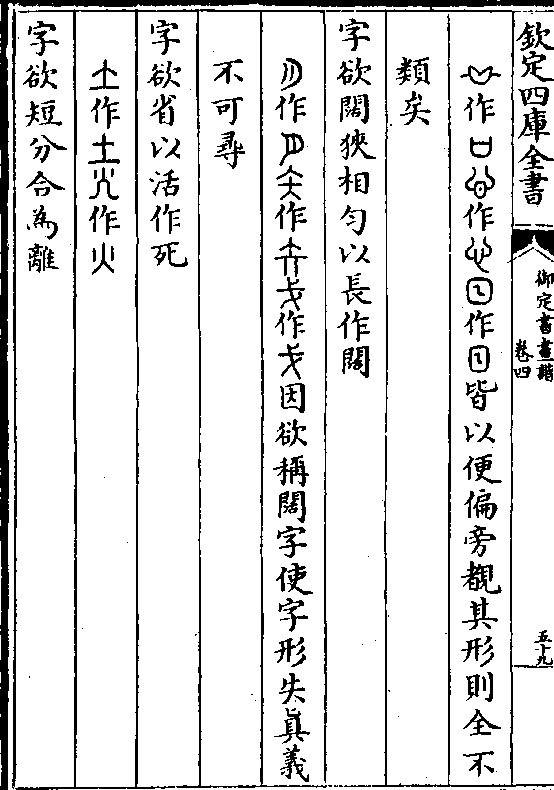 欽定四庫全書
御定書畫譜
卷四
五十九
作作作皆以便偏旁觀其形則全不
類矣
字欲闊狹相勻以長作闊
作作作因欲稱闊字使字形失眞義
不可尋
字欲省以活作死
作土作火
字欲短分合為離